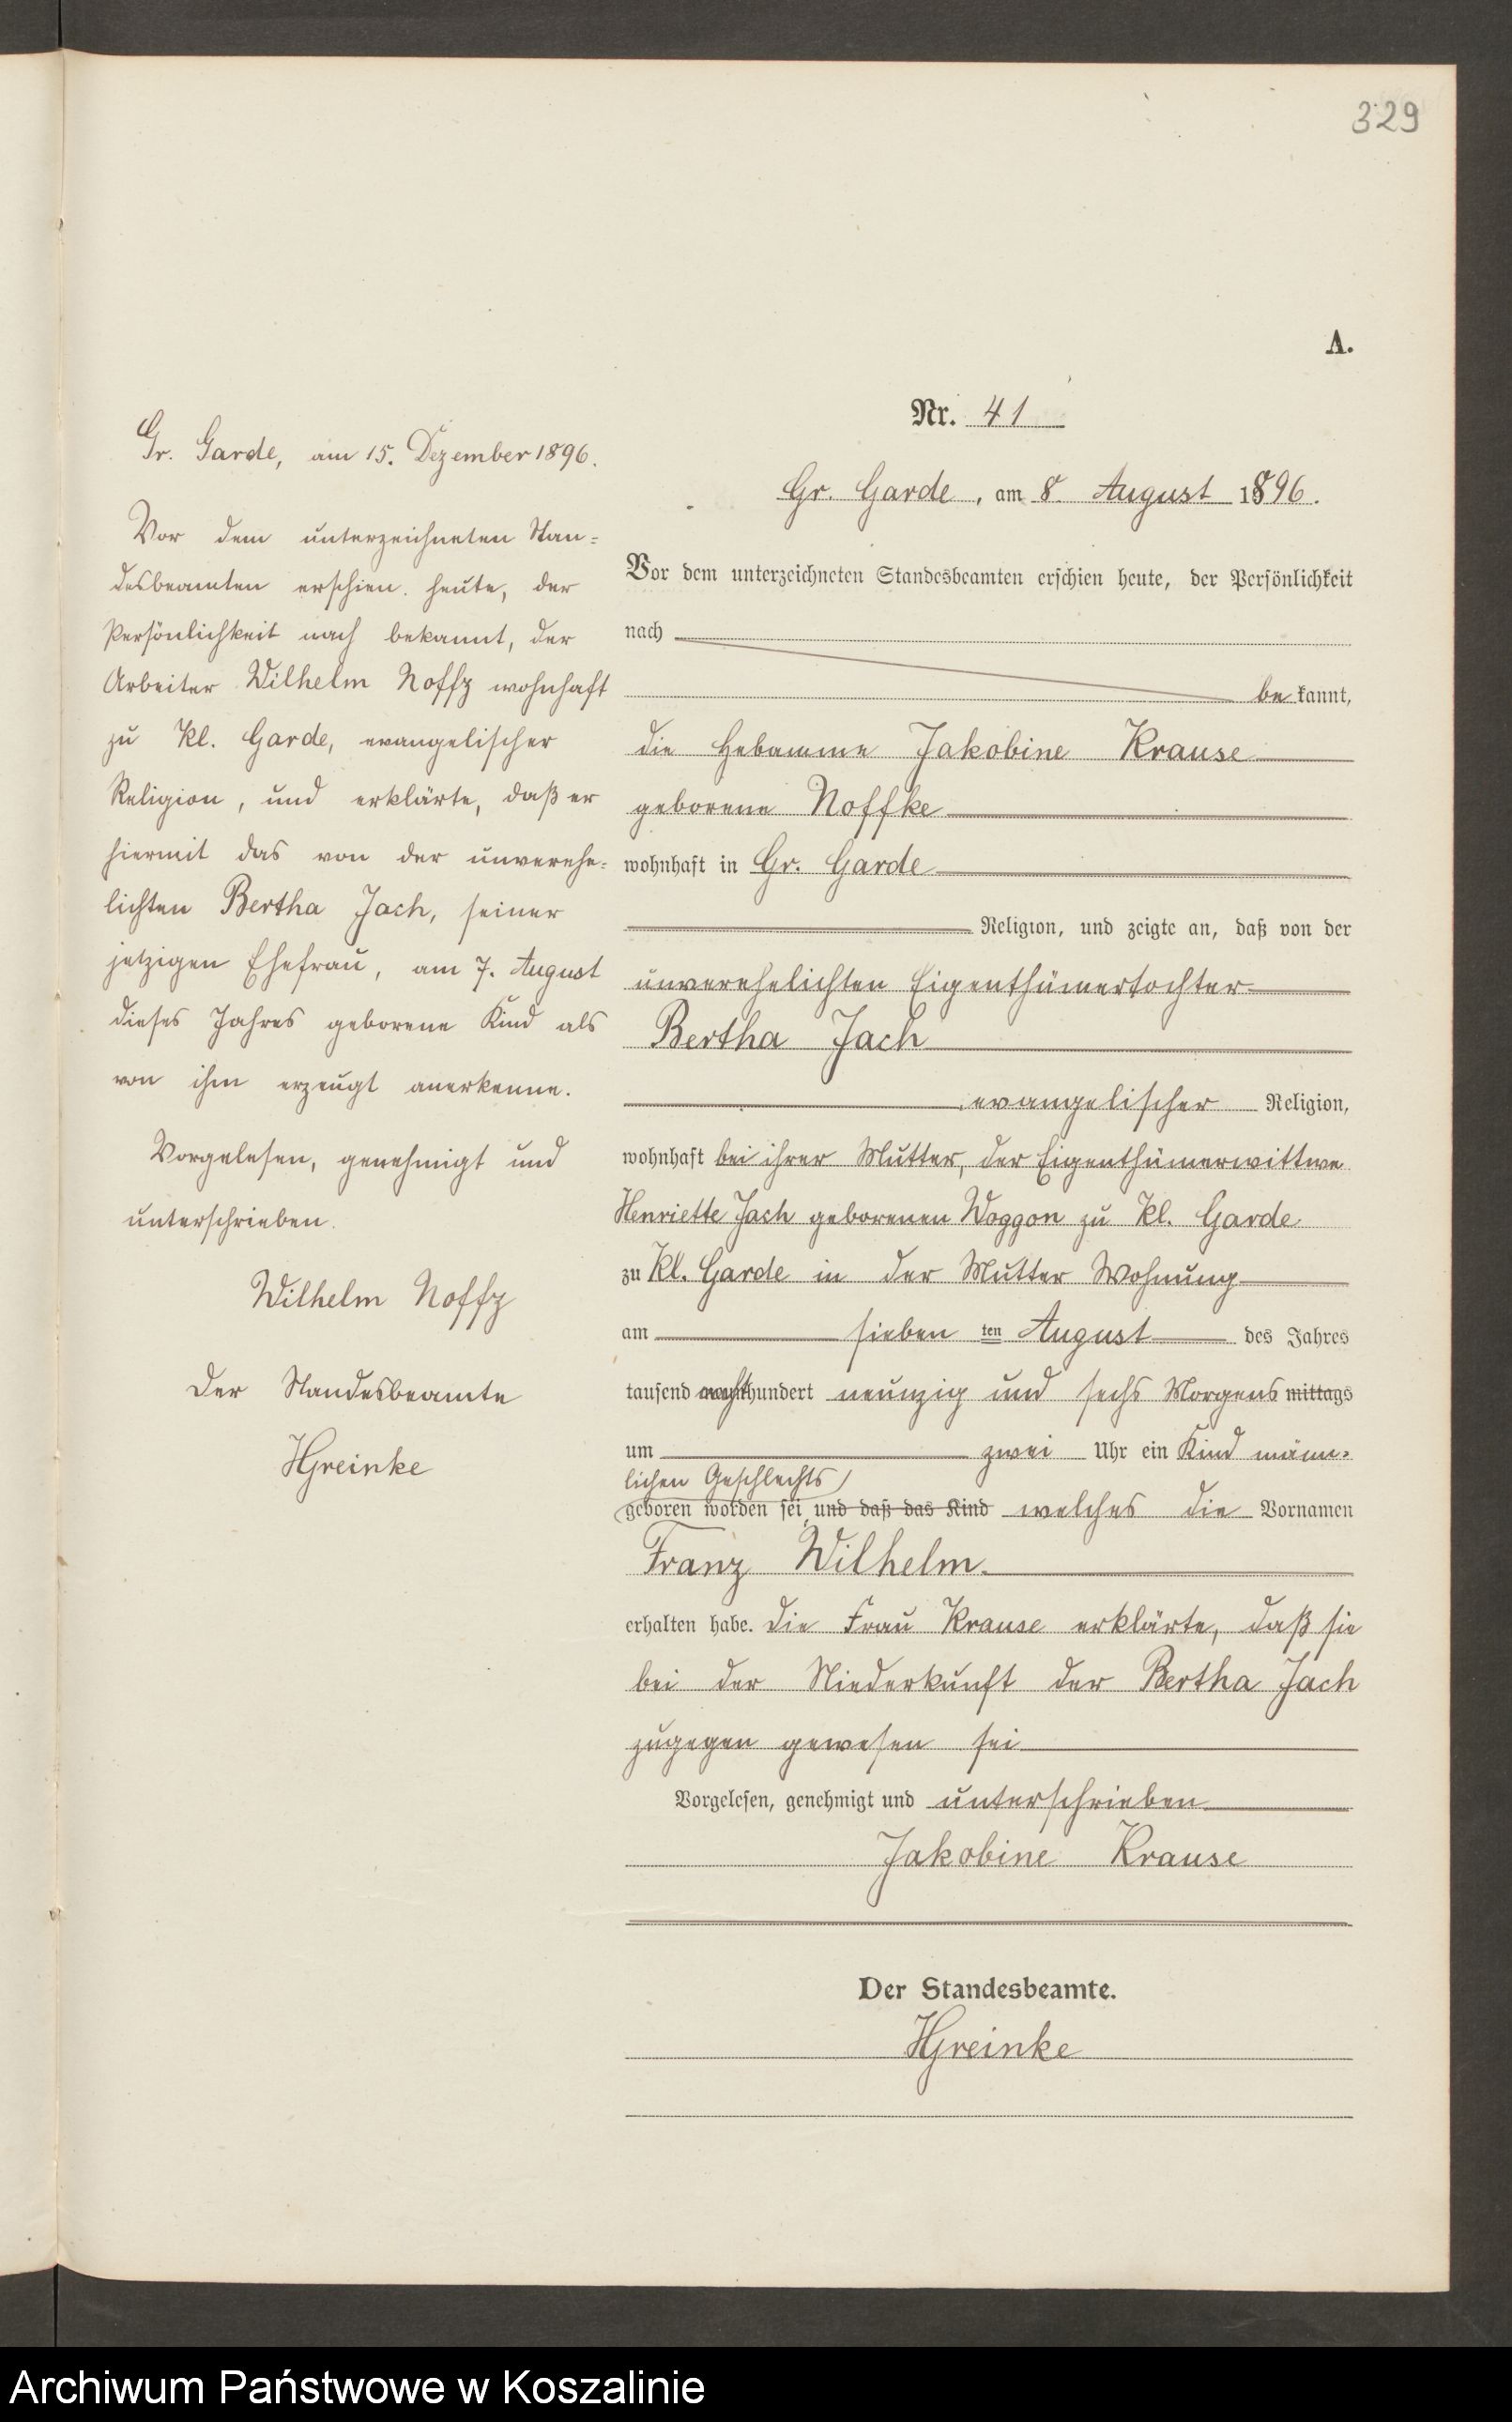 329
A.
Nr. 41
Gr. Garde, am 8. August 1896.
Vor dem unterzeichneten Standesbeamten erschien heute, der Persönlichkeit
nach
be kannt,
die Hebamme Jakobine Krause
geborene Noffke
wohnhaft in Gr. Garde
Religion, und zeigte an, daß von der
unverehelichten Eigenthümertochter
Bertha Jach
evangelischer Religion,
wohnhaft bei ihrer Mutter, der Eigenthümerwittwe
Henriette Jach geborenen Woggon zu Kl. Garde
zu Kl. Garde in der Mutter Wohnung
am sieben ten August des Jahres
tausend achthundert neunzig und sechs Morgens mittags
um zwei Uhr ein Kind männ-
lichen Geschlechts
geboren worden sei, und daß das Kind welches die Vornamen
Franz Wilhelm.
erhalten habe. Die Frau Krause erklärte, daß sie
bei der Niederkunft der Bertha Jach
zugegen gewesen sei
Vorgelesen, genehmigt und unterschrieben
Jakobine Krause
Der Standesbeamte.
HGreinke
Gr. Garde, am 15. Dezember 1896.
Vor dem unterzeichneten Stan-
desbeamten erschien heute, der
Persönlichkeit nach bekannt, der
Arbeiter Wilhelm Noffz wohnhaft
zu Kl. Garde, evangelischer
Religion, und erklärte, daß er
hiermit das von der unverehe-
lichten Bertha Jach, seiner
jetzigen Ehefrau, am 7. August
dieses Jahres geborene Kind als
von ihm erzeugt anerkenne.
Vorgelesen, genehmigt und
unterschrieben.
Wilhelm Noffz
Der Standesbeamte
HGreinke
Archiwum Państwowe w Koszalinie